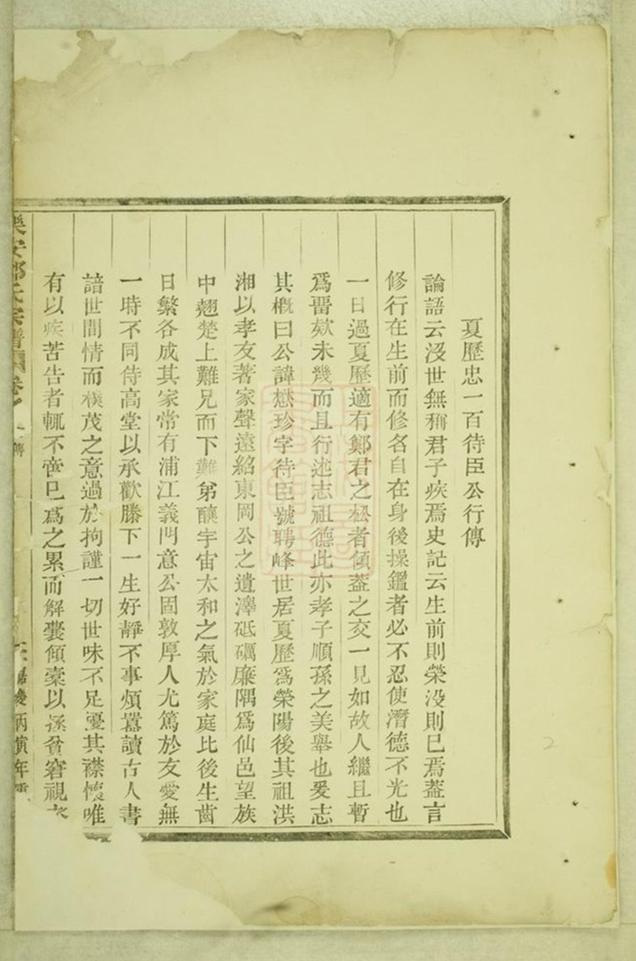 夏歷忠一百待臣公行傳
論語云沒世無稱君子疾焉史記云生前則榮沒則已焉蓋言
修行在生前而修名自在身後操鑑者必不忍使潛德不光也
一日過夏歷適有鄭君之松者傾蓋之交一見如故人繼且暫
爲晋欵未幾而且行述志祖德此亦孝子順孫之美舉也爰志
其槪曰公諱懋珍字待臣號聘峰世居夏歷爲榮陽後其祖洪
湘以孝友著家聲遠紹東岡公之遺澤砥礪廉隅爲仙邑望族
中翹楚上難兄而下難弟釀宇宙太和之氣於家庭比後生齒
日繁各成其家常有浦江義門意公固敦厚人尤篤於友愛無
一時不同侍高堂以承歡膝下一生好靜不事煩囂讀古人書
諳世間情而樸茂之意過於拘謹一切世味不足憂其襟懷唯
有以疾苦告者輒不啻已爲之累而解囊傾橐以拯貧窘視
安鄭氏宗譜 卷
嘉慶丙寅年